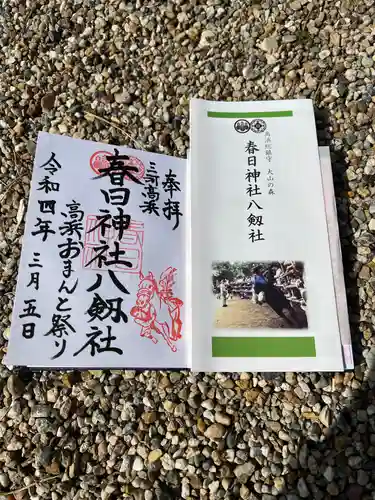 奉拝
三河高浜
春日神社八剱社
高浜おまんと祭り
令和四年三月五日
高浜総鎮守 大山の森
春日神社八剱社